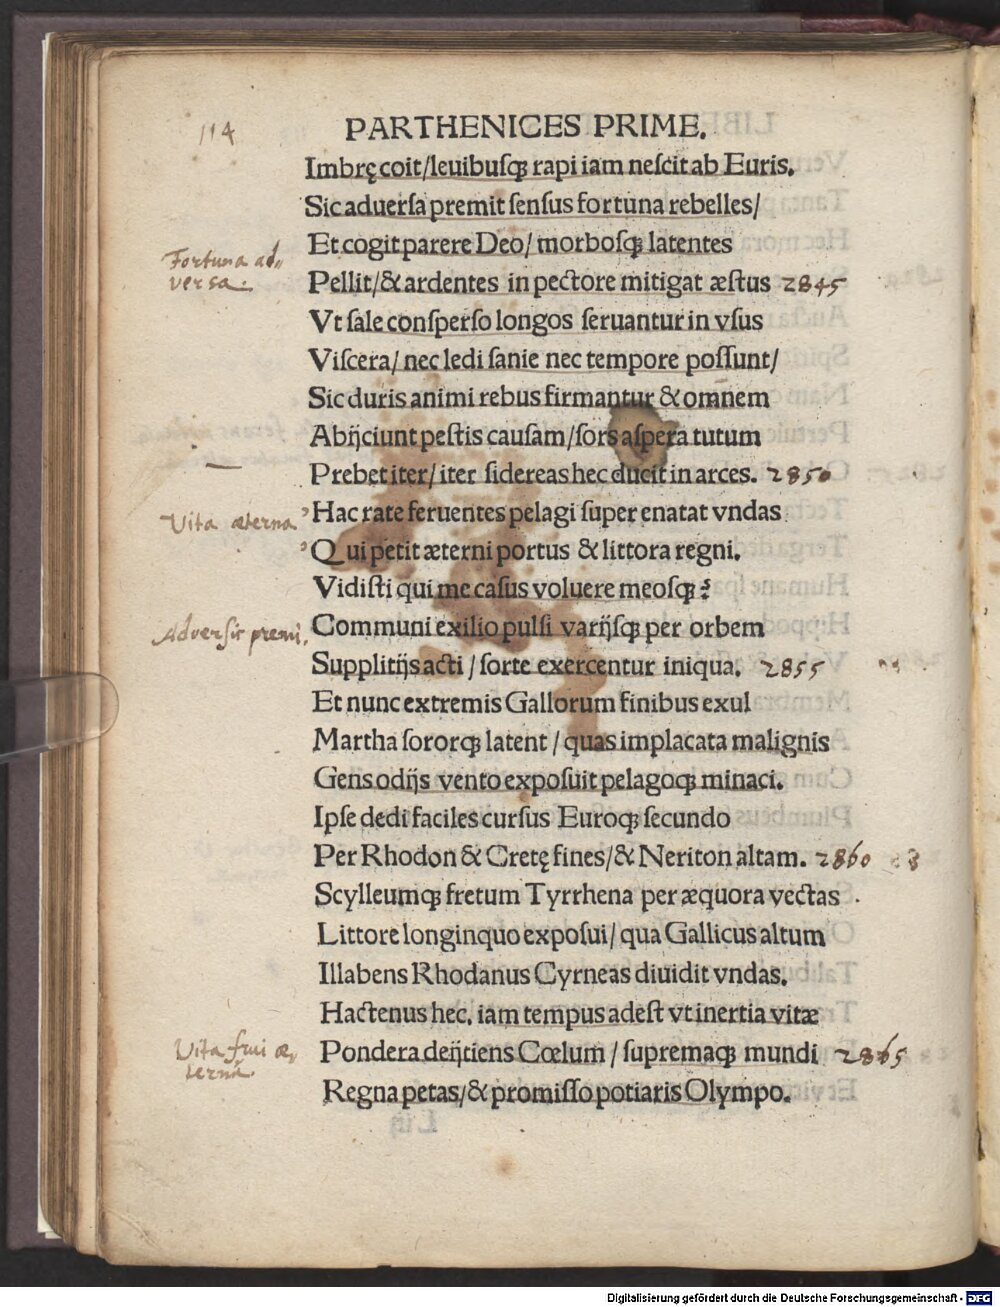 114
PARTHENICES PRIME.
Imbrę coit/leuibusqꝫ rapi iam nescit ab Euris.
Sic aduersa premit sensus fortuna rebelles/
Et cogit parere Deo/ morbosqꝫ latentes
Fortuna ad,
versa.
Pellit/& ardentes in pectore mitigat æstus 2845
Vt sale consperso longos seruantur in vsus
Viscera/ nec ledi sanie nec tempore possunt/
Sic duris animi rebus firmantur & omnem
Abijciunt pestis causam/sors aspera tutum
Prebet iter/ iter sidereas hec ducit in arces. 2850
Vita æterna
Hac rate feruentes pelagi super enatat vndas
Qui petit æterni portus & littora regni.
Vidisti qui me casus voluere meosqꝫ?
Adversis premi.
Communi exilio pulsi varijsqꝫ per orbem
Supplitijs acti / sorte exercentur iniqua. 2855
Et nunc extremis Gallorum finibus exul
Martha sororqꝫ latent / quas implacata malignis
Gens odijs vento exposuit pelagoqꝫ minaci.
Ipse dedi faciles cursus Euroqꝫ secundo
Per Rhodon & Cretę fines/& Neriton altam. 2860
Scylleumqꝫ fretum Tyrrhena per æquora vectas
Littore longinquo exposui/ qua Gallicus altum
Illabens Rhodanus Cyrneas diuidit vndas.
Hactenus hec. iam tempus adest vt inertia vitæ
Vita frui æ,
terna.
Pondera deijtiens Cœlum / supremaqꝫ mundi 2865
Regna petas/& promisso potiaris Olympo.
Digitalisierung gefördert durch die Deutsche Forschungsgemeinschaft - DFG